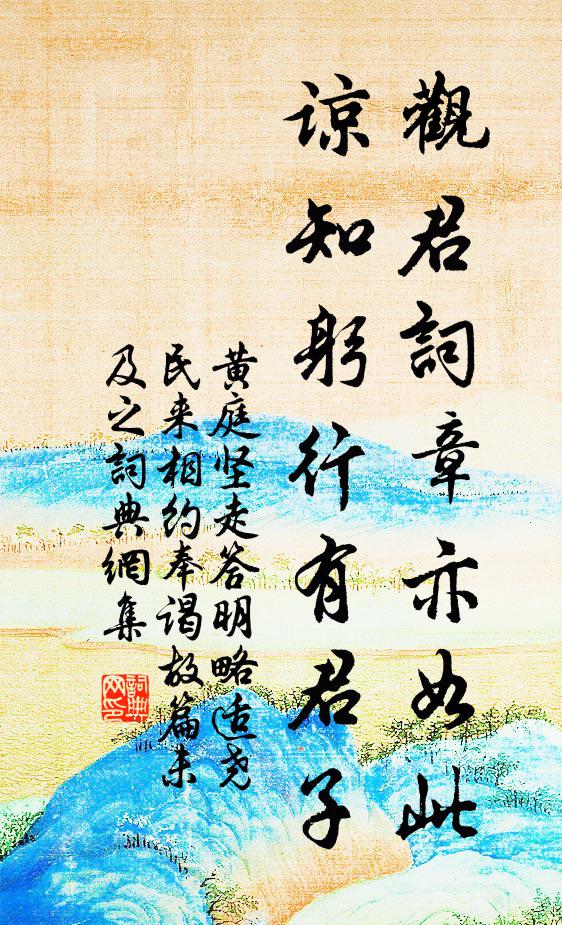 觀君詞章亦如此
諒知躬行有君子
黄庭坚走答明略适尧
民来相约奉谒故篇末
及之詞典網集
詞典
网印